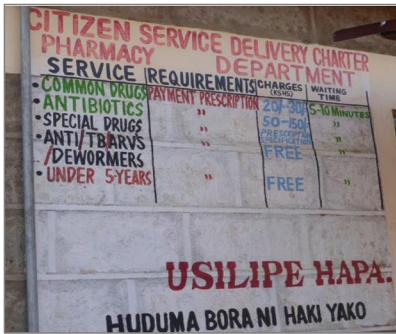 CITIZEN SERVICE DELIVERY CHARTER
PHARMACY DEPARTMENT
SERVICE REQUIREMENTS CHARGES (KSHS) WAITING TIME
• COMMON DRUGS PAYMENT PRESCRIPTION 20/-30/ 5-10 MINUTES
• ANTIBIOTICS " 50-150/ "
• SPECIAL DRUGS " PRESCRIPTION SPECIFICATION "
• ANTI/TB/ARVS FREE "
/DEWORMERS
• UNDER 5-YEARS " FREE "
USILIPE HAPA.
HUDUMA BORA NI HAKI YAKO